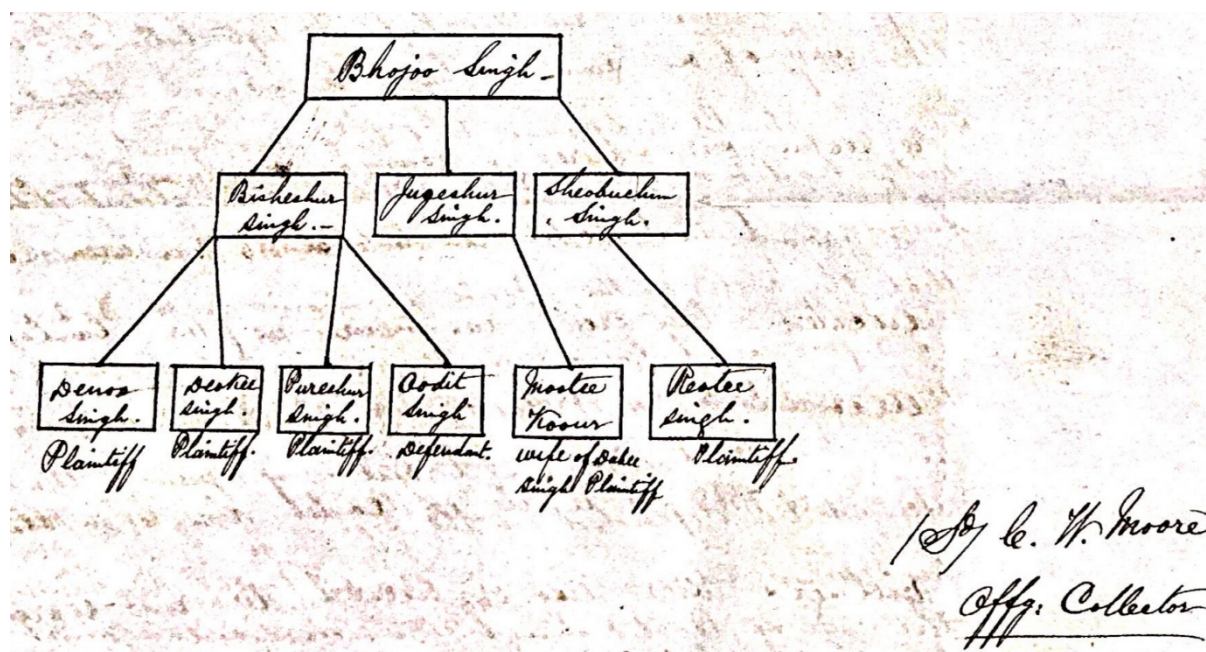 Bhojoo Singh -
Bisheshur
Singh. -
Jugeshur
Singh.
Sheobuchun
Singh.
Denoo
Singh.
Plaintiff
Deokee
Singh.
Plaintiff.
Pureshur
Singh.
Plaintiff.
Oodit
Singh
Defendant.
Mootee
Koour
wife of Dekee
Singh Plaintiff
Reotee
Singh.
Plaintiff.
C. W. Moore
Offg: Collector